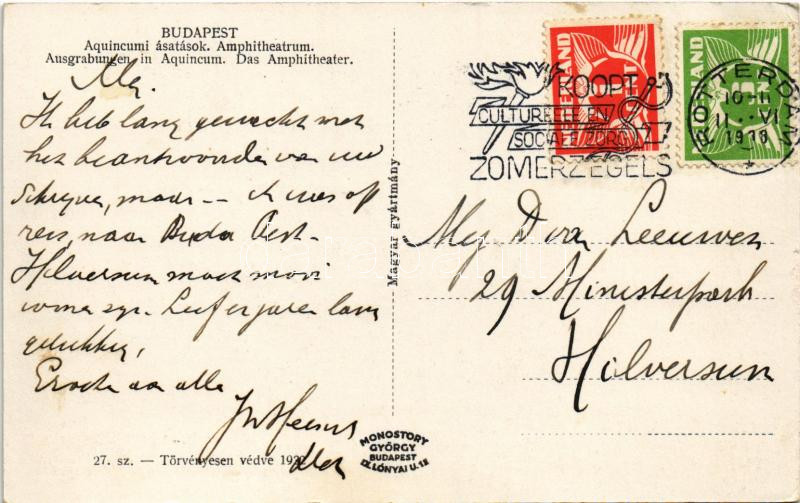 BUDAPEST
Aquincumi ásatások. Amphitheatrum.
Ausgrabungen in Aquincum. Das Amphitheater.
Ik heb lang gewacht met
het beantwoorden van uw
schrijven, maar -- ik was op
reis, naar Buda Pest.
Hilversum moet mooi
wonen zijn. Leef er jaren lang
gelukkig,
Groete aan alle
27. sz. — Törvényesen védve
Magyar gyártmány
MONOSTORY
GYÖRGY
BUDAPEST
IX. LÓNYAI U. 18
NEDERLAND
CENT
NEDERLAND
CENT
KOOPT
CULTUREELE EN
SOCIALE ZORG
ZOMERZEGELS
ROTTERDAM
10-11
11 VI
1938
Leeuwen
29 Ministerpark
Hilversum